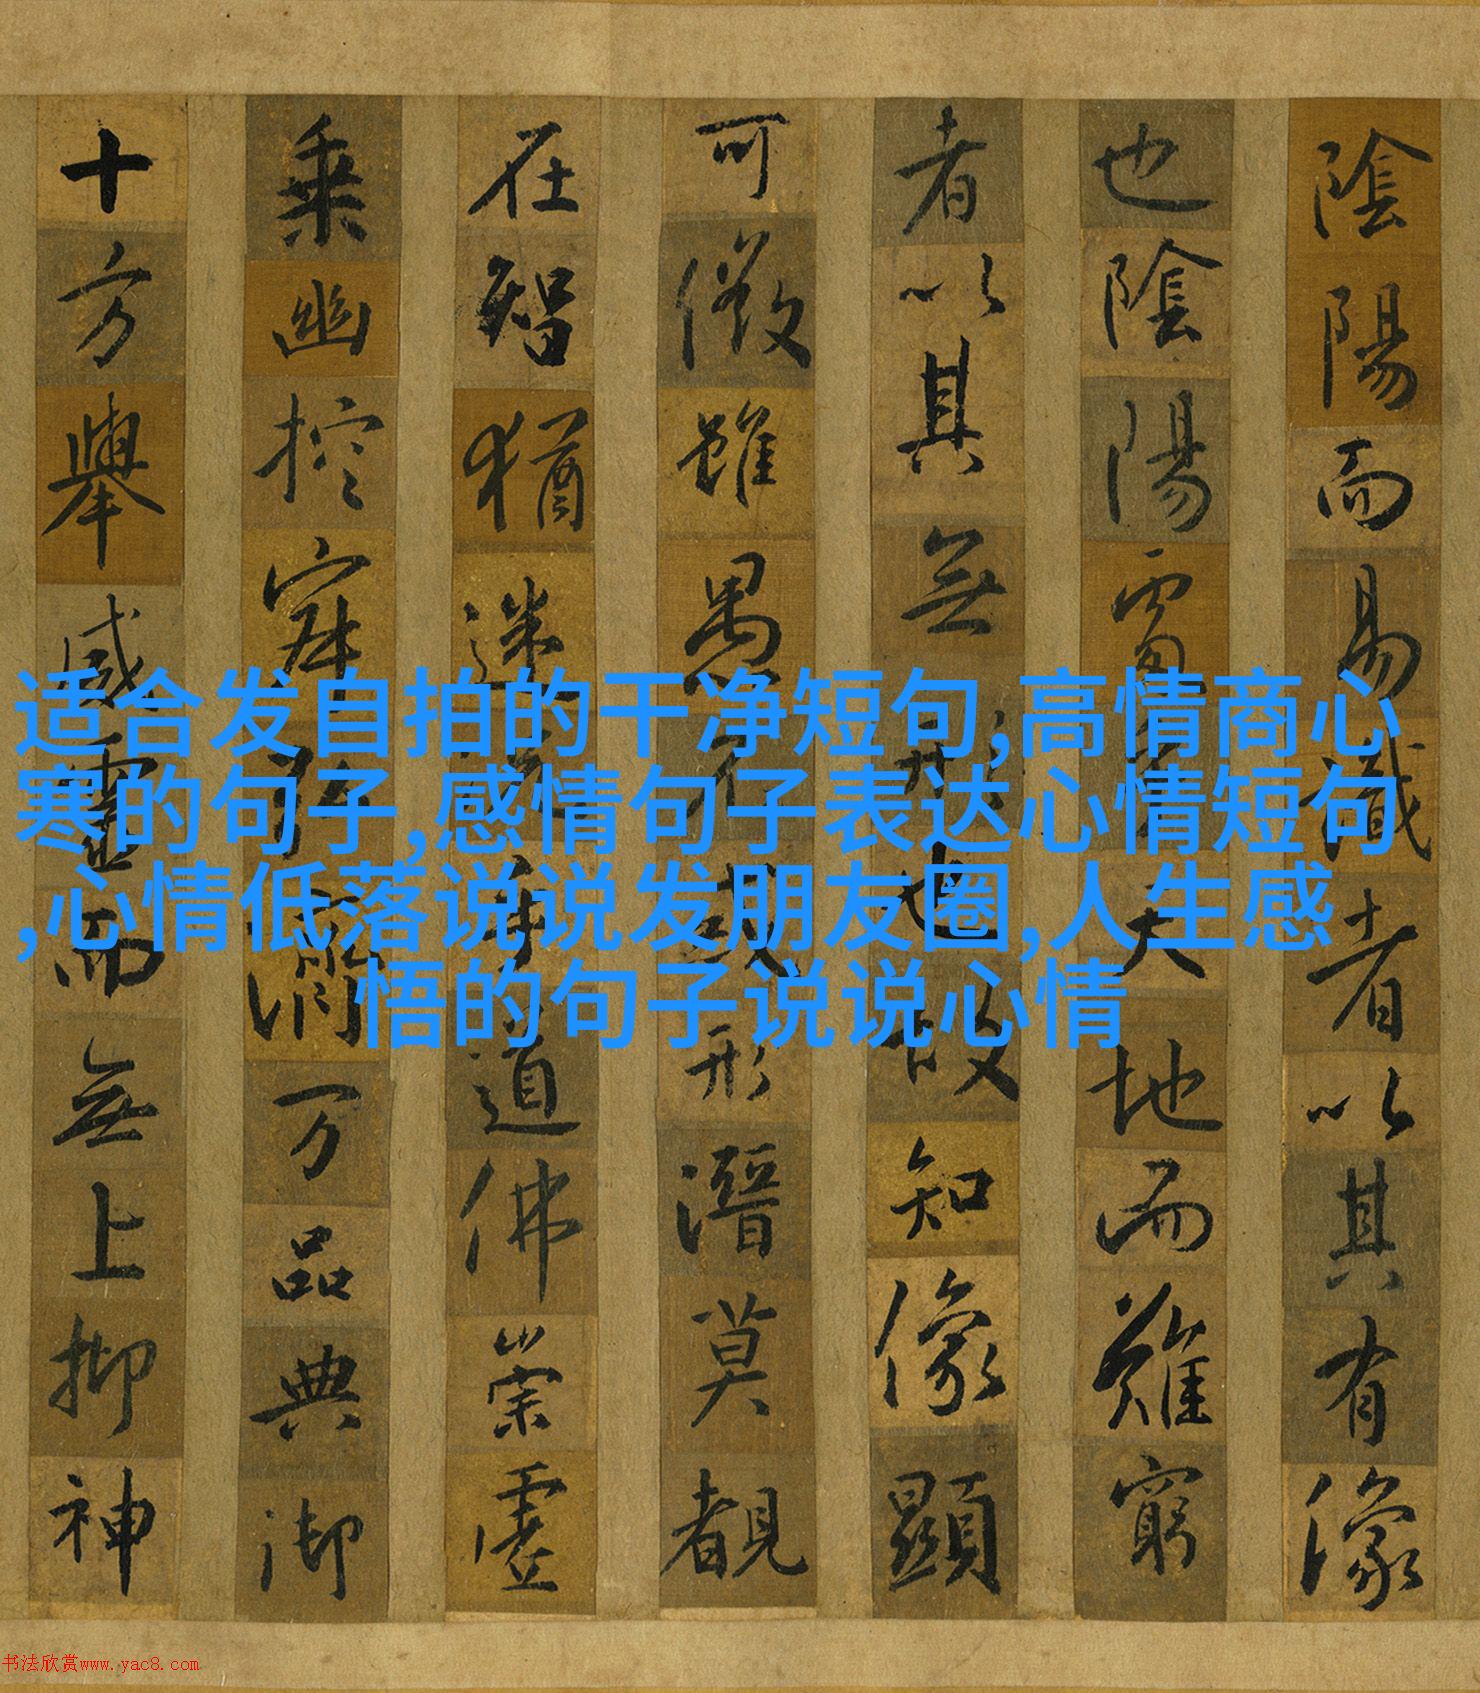 陰陽而易識者以其有像
也陰陽處乎天地而難窮
者以其無形也故知像顯
可徵雖愚不惑形潛莫覩
在智猶迷況乎佛道崇虛
乘幽控寂弘濟万品典御
十方舉威靈而無上抑神
适合发自拍的干净短句,高情商心
寒的句子,感情句子表达心情短句
,心情低落说说发朋友圈,人生感
悟的句子说说心情
书法欣赏www.yac8.com